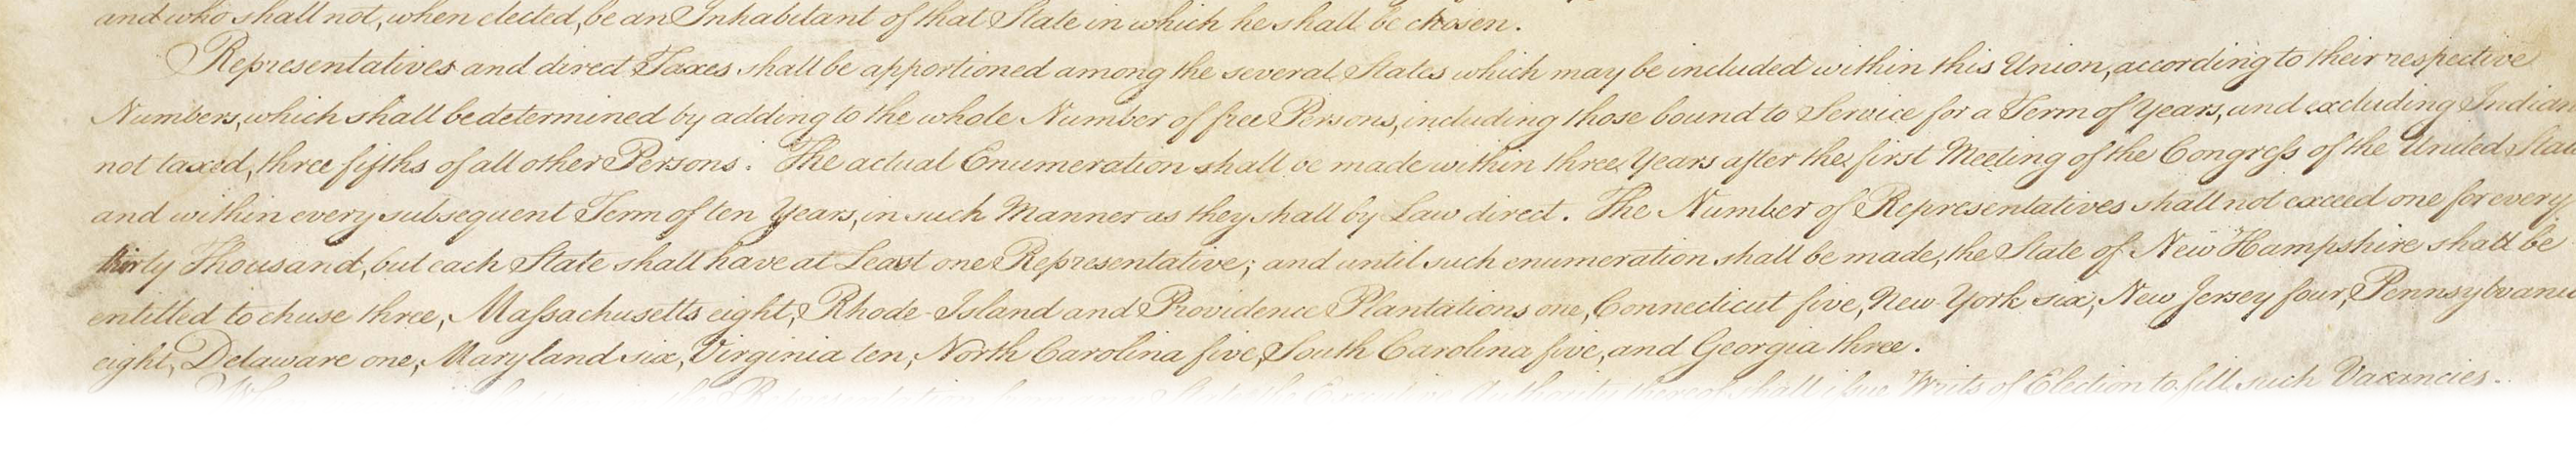 and who shall not, when elected, be an Inhabitant of that State in which he shall be chosen.
Representatives and direct Taxes shall be apportioned among the several States which may be included within this Union, according to their respective
Numbers, which shall be determined by adding to the whole Number of free Persons, including those bound to Service for a Term of Years, and excluding Indian
not taxed, three fifths of all other Persons. The actual Enumeration shall be made within three Years after the first Meeting of the Congress of the United Stat
and within every subsequent Term of ten Years, in such Manner as they shall by Law direct. The Number of Representatives shall not exceed one for every
thirty Thousand, but each State shall have at Least one Representative; and until such enumeration shall be made, the State of New Hampshire shall be
entitled to chuse three, Massachusetts eight, Rhode-Island and Providence Plantations one, Connecticut five, New-York six, New Jersey four, Pennsylvania
eight, Delaware one, Maryland six, Virginia ten, North Carolina five, South Carolina five, and Georgia three.
Representation Authority thereof shall issue Writs of Election to fill such Vacancies.